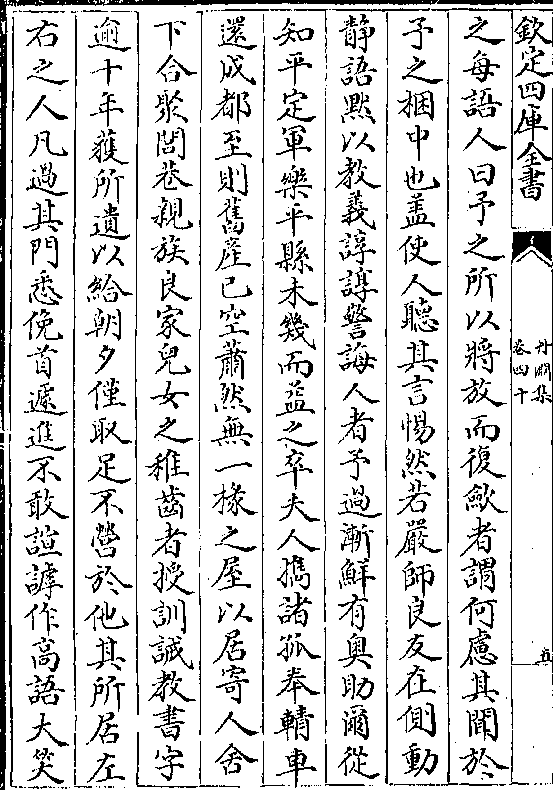 欽定四庫全書
丹淵集
卷四十
之每語人曰予之所以將放而復歛者謂何慮其聞於
予之梱中也盖使人聽其言惕然若嚴師良友在側動
静語黙以教義諄諄警誨人者予過漸鮮有奥助爾從
知平定軍樂平縣未幾而益之卒夫人攜諸孤奉輤車
還成都至則舊産已空蕭然無一椽之屋以居寄人舍
下合聚閭巷親族良家兒女之稚齒者授訓誡教書字
逾十年獲所遺以給朝夕僅取足不營於他其所居左
右之人凡過其門悉俛首遽進不敢諠謼作高語大笑